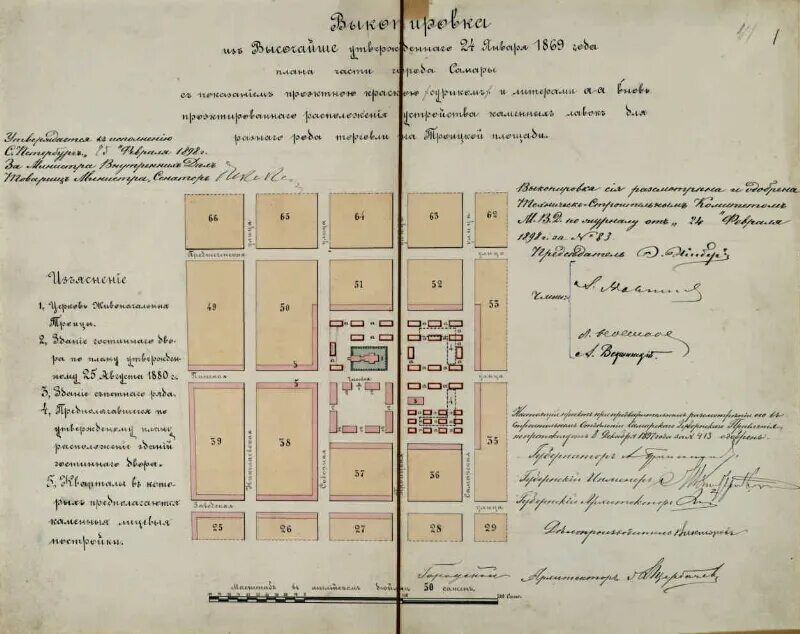 Выкопировка
изъ Высочайше утвержденнаго 24 Января 1869 года
плана части города Самары
съ показанiемъ проэктною краскою /сурикомъ/ и литерами а-а вновь
проэктированнаго расположенiя и устройства каменныхъ лавокъ для
разнаго рода торговли на Троицкой площади.
1
Утверждается къ исполненiю
С. Петербургъ, Февраля 1898 г.
За Министра Внутреннихъ Делъ
Товарищъ Министра, Сенаторъ
Выкопировка сiя разсмотрена и одобрена
Техническо-Строительнымъ Комитетомъ
М.В.Д. по журналу отъ „24" Февраля
1898 г. за № 83.
Председатель
Члены:
Изъясненiе
1, Церковь Живоначальныя
Троицы.
2, Зданiе гостиннаго дво-
ра по плану утвержден-
ному 25 Августа 1880 г.
3, Зданiе ряда.
4, Предполагавшееся по
утвержденному плану
расположенiе зданiй
гостиннаго двора.
5, Кварталы въ кото-
рыхъ предполагаются
каменныя лицевыя
постройки.
66 65 64 63 62
улица улица улица
Предтеченская улица
49 50 51 52 53
Панская улица
39 38 37 36 35
Николаевская Соборная Троицкая Самарская
Заводская улица
25 26 27 28 29
Настоящiй проектъ при предварительномъ разсмотренiи его въ
Строительномъ Отделенiи Самарскаго Губернскаго Правленiя
по протоколу 8 Декабря 1897 года за № 213 одобренъ.
Губернаторъ
Губернскiй Инженеръ
Губернскiй Архитекторъ
Делопроизводитель
Городской Архитекторъ Щербачевъ
Масштабъ въ англiйскомъ дюйме 50 саженъ.